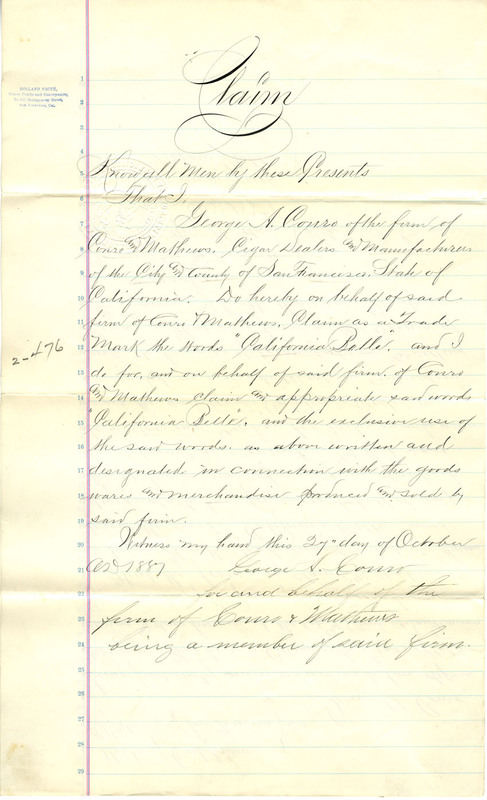 Claim
HOLLAND SMITH,
Notary Public and Conveyancer,
Montgomery Street,
San Francisco, Cal.
Know all Men by these Presents
That I,
George A. Conro of the firm of
Conro and Mathews. Cigar Dealers and Manufacturers
of the City and County of San Francisco. State of
California. Do hereby on behalf of said
firm of Conro Mathews, Claim as a Trade
Mark the words "California Belle". and I
do for, and on behalf of said firm, of Conro
and Mathews claim and appropriate said words
"California Belle". and the exclusive use of
the said words. as above written and
designated in connection with the goods
wares and merchandise produced and sold by
said firm.
Witness my hand this 27" day of October
AD 1887
George A. Conro
for and behalf of the
firm of Conro & Mathews
being a member of said firm.
2-476
1
2
3
4
5
6
7
8
9
10
11
12
13
14
15
16
17
18
19
20
21
22
23
24
25
26
27
28
29